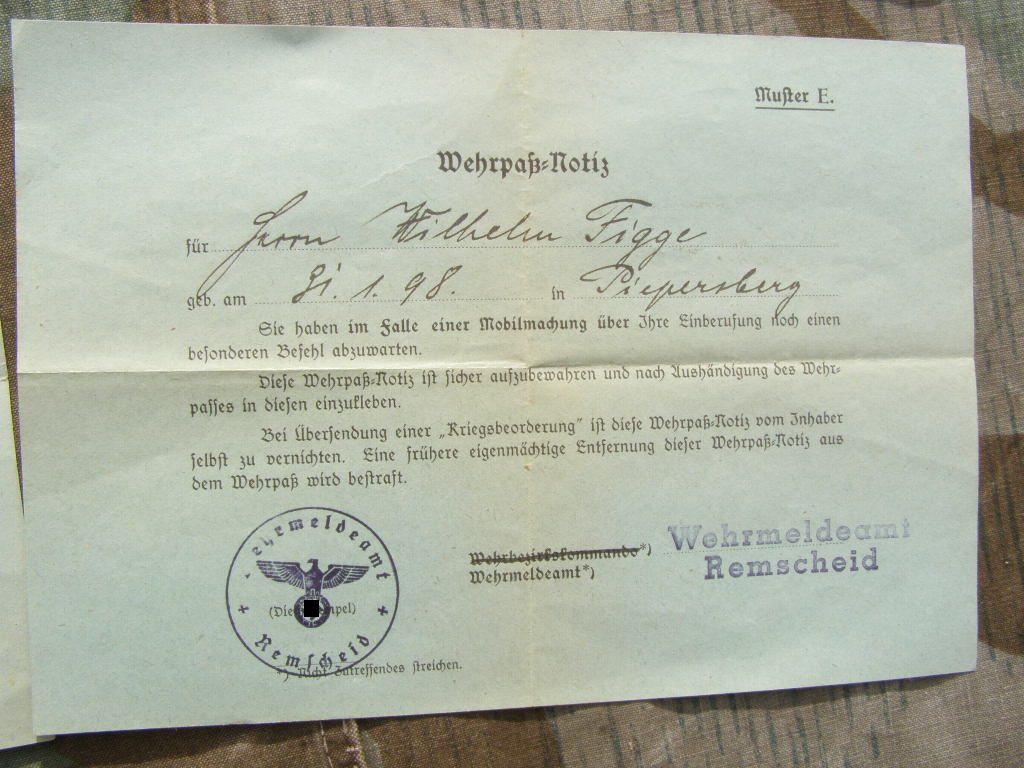 Muster E.
Wehrpaß-Notiz
für Herrn Wilhelm Figge
geb. am 31. 1. 98. in Piepersberg
Sie haben im Falle einer Mobilmachung über Ihre Einberufung noch einen
besonderen Befehl abzuwarten.
Diese Wehrpaß-Notiz ist sicher aufzubewahren und nach Aushändigung des Wehr-
passes in diesen einzukleben.
Bei Übersendung einer „Kriegsbeorderung" ist diese Wehrpaß-Notiz vom Inhaber
selbst zu vernichten. Eine frühere eigenmächtige Entfernung dieser Wehrpaß-Notiz aus
dem Wehrpaß wird bestraft.
Wehrmeldeamt
Remscheid
Wehrbezirkskommando*)
Wehrmeldeamt*)
Wehrmeldeamt
Remscheid
*) Nicht Zutreffendes streichen.